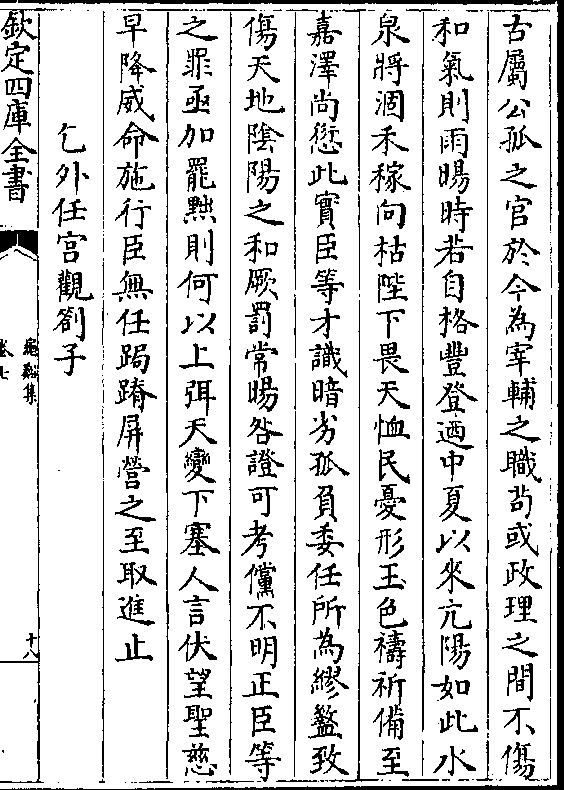 古屬公孤之官於今為宰輔之職茍或政理之間不傷
和氣則雨暘時若自格豐登廼中夏以來亢陽如此水
泉將涸禾稼向枯陛下畏天恤民憂形玉色禱祈備至
嘉澤尚愆此實臣等才識暗劣孤負委任所為繆盭致
傷天地隂陽之和厥罰常暘咎證可考儻不明正臣等
之罪亟加罷黜則何以上弭天變下塞人言伏望聖慈
早降威命施行臣無任跼蹐屏營之至取進止
乞外任宫觀劄子
欽定四庫全書
龜谿集
卷七
十八